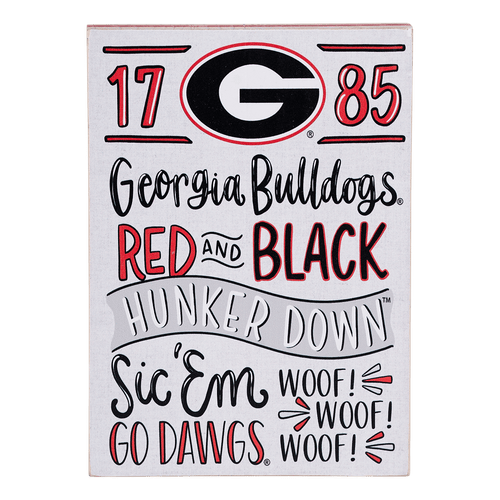 17 G® 85
Georgia Bulldogs®
RED AND BLACK
HUNKER DOWN™
Sic 'Em
GO DAWGS®
WOOF!
WOOF!
WOOF!